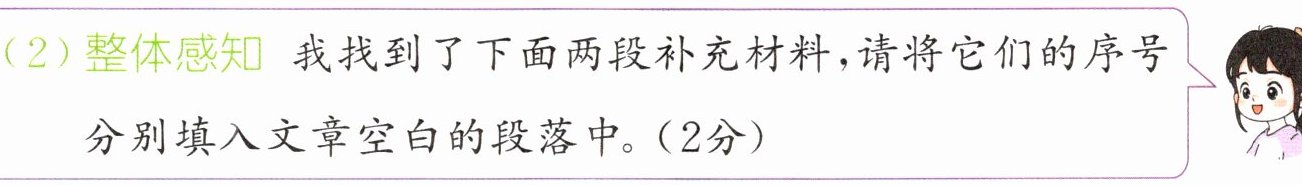 （2）整体感知 我找到了下面两段补充材料，请将它们的序号
分别填入文章空白的段落中。（2分）